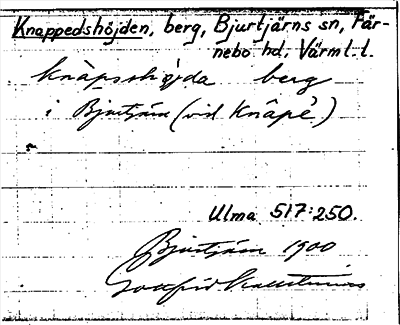 Knappedshöjden, berg, Bjurtjärns sn, Fär-
nebo hd, Värml. l.
knàpshö̀jda berg
i Bjurtjärn (vid Knâpè)
Ulma 517:250.
Bjurtjärn 1900